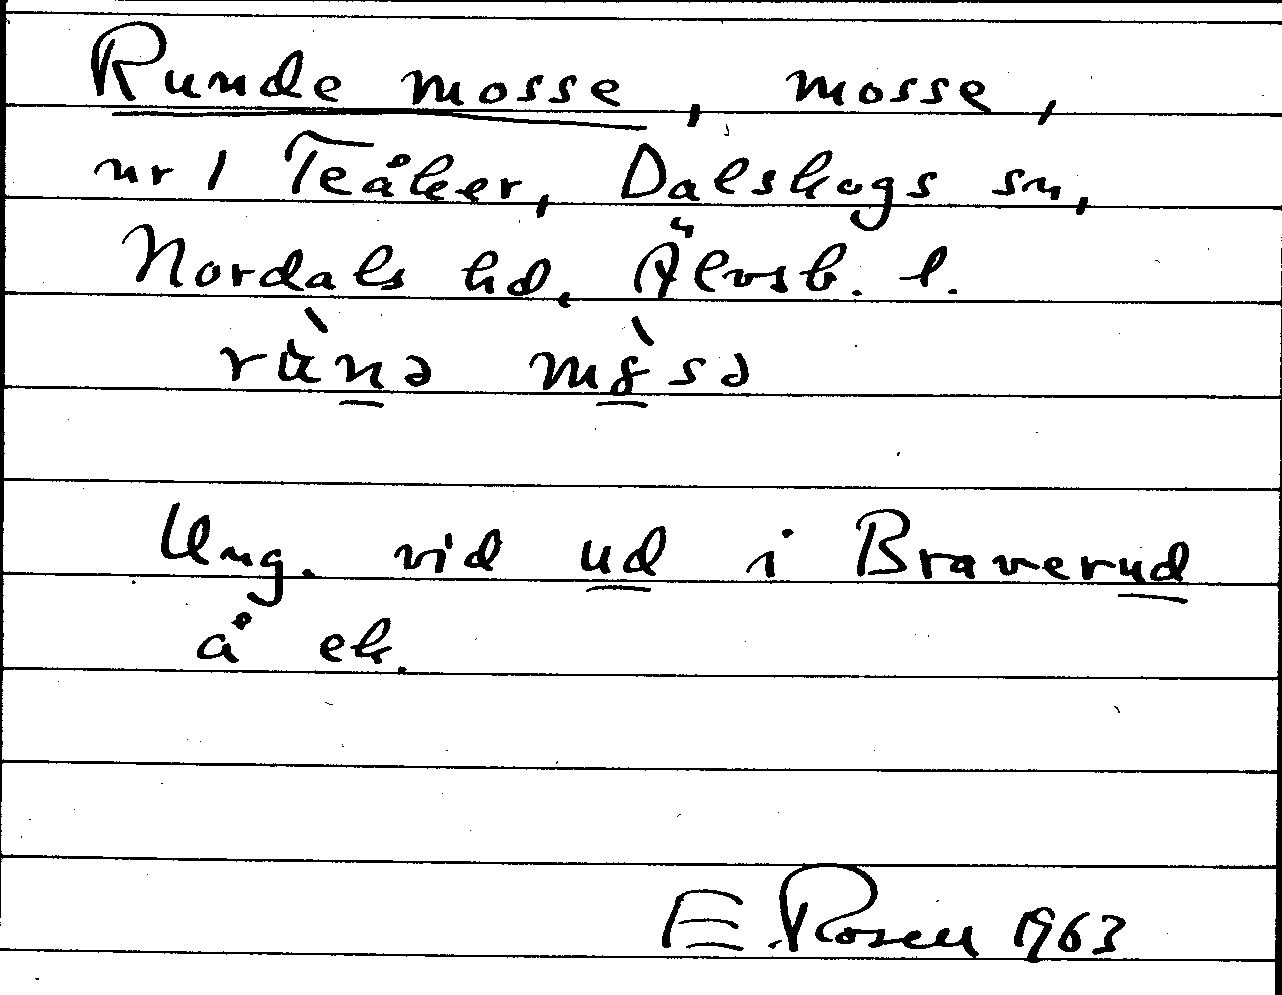 Runde mosse, mosse,
nr 1 Teåker, Dalskogs sn,
Nordals hd. Älvsb. l.
Ung. vid ud i Braverud
å ek.
E. Rosell 1963